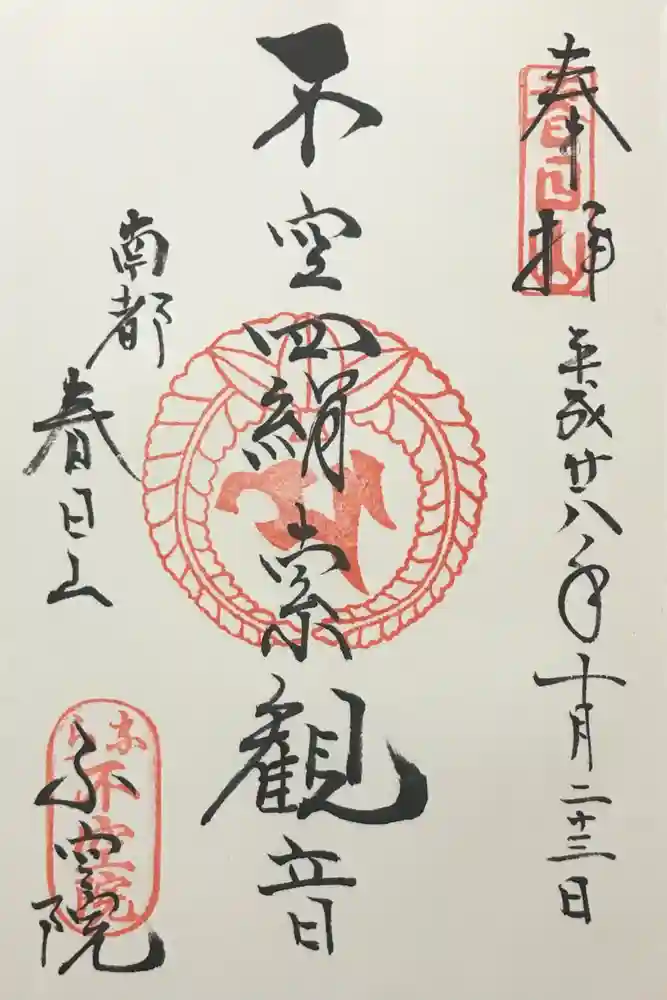 奉拝
平成廿八年十月二十三日
不空羂索観音
南都
春日山
不空院
春日山
不空院